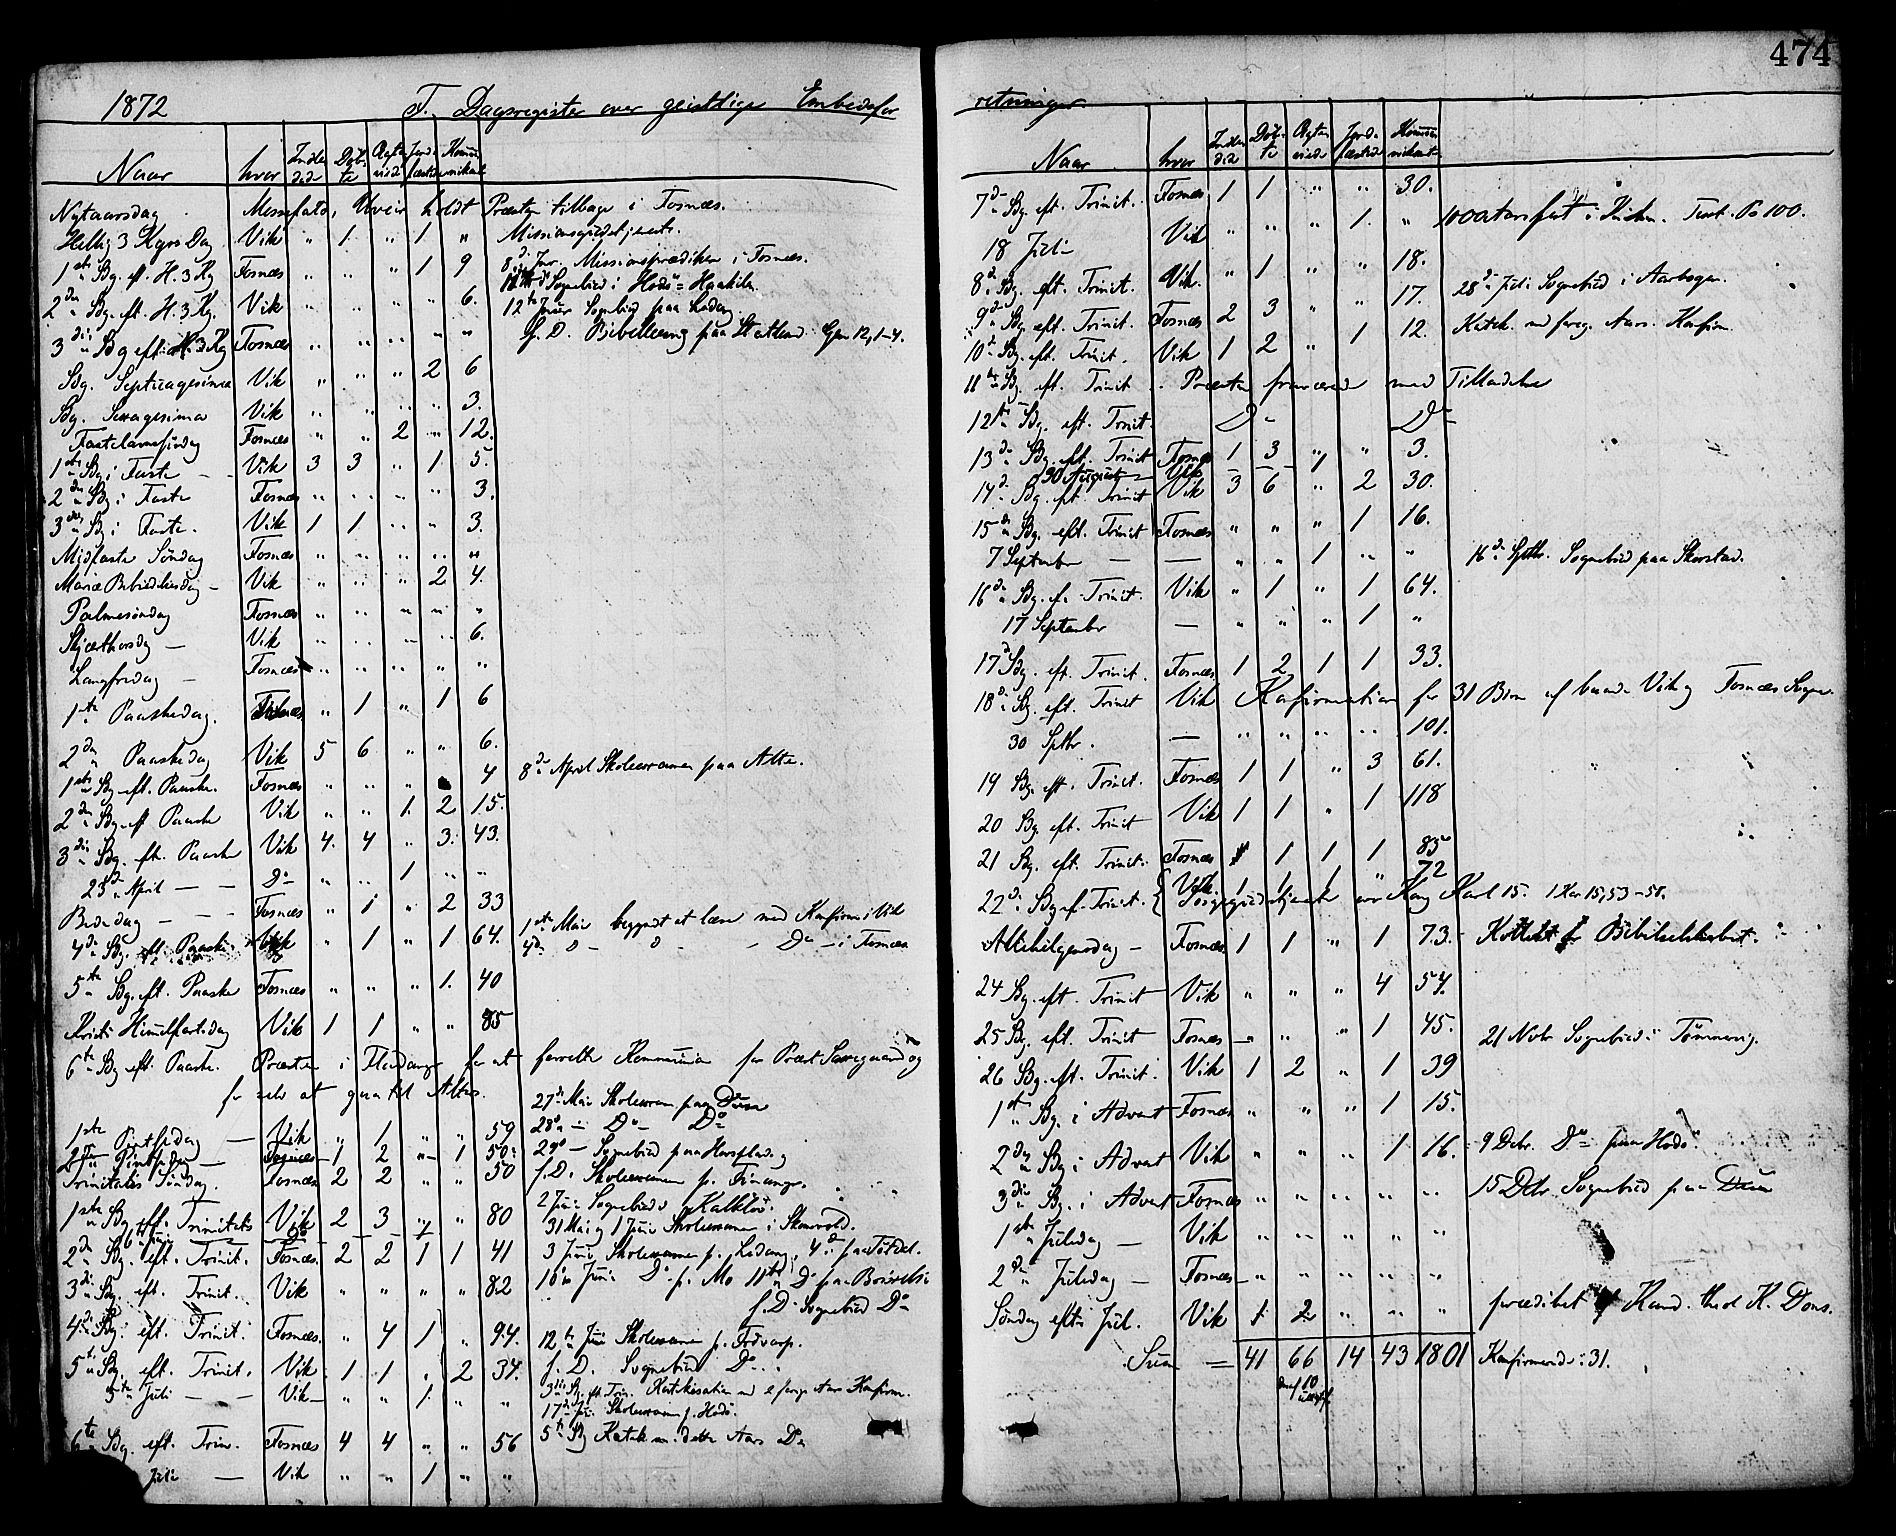 474
1872 F. Dagsregister over geistlige Embedsfor
Naar hvor Indle did Døb- te Ægte vied Jord- fæstede Kommu nikant
Nytaarsdag Messefald, Uveir holdt Præsten tilbage i Fosnæs.
Hellig 3 Kgrs Dag Vik " 1 " 1 " Missionsgudstjeneste.
1ste Sg. eft. H. 3 Kg Fosnæs " " " 1 9 8de Jnr. Missionsprædiken i Fosnæs.
Sognebud i Hodø
2den Sg. eft. H. 3 Kg. Vik " " " " 6. 12te Jnur Sognebud paa
3die Sg eft. H. 3 Kg Fosnæs " " " " " S. D. Bibellæsning paa Statland. Gen 12, 1-4.
Sg. Septuagesima Vik " " " 2 6
Sg. Sexagesima Vik " " " " 3.
Fastelavnssøndag Fosnæs " " 2 " 12.
1ste Sg i Faste - Vik 3 3 " 1 5.
2den Sg i Faste Fosnæs " " " " 3.
3die Sg i Faste. Vik 1 1 " " 3.
Midfaste Søndag Fosnæs " " " " "
Mariæ Bebudelsesdag - Vik " " " 2 4.
Palmesøndag Fosnæs " " " " "
Skjærthorsdag - Vik " " " " 6.
Langfredag - Fosnæs " " " " "
1ste Paaskedag. Fosnæs " 1 " 1 6
2den Paaskedag Vik 5 6 " " 6.
1ste Sg. eft. Paaske. Fosnæs " " " 4 8de April Skoleexamen paa Alte.
2den Sg. eft Paaske Vik " " 1. 2 15.
3die Sg. eft. Paaske Vik 4. 4 " 3. 43.
23de April - - Do " " 1 " "
Bededag - - - Fosnæs " 1 " 2 33
4de Sg. eft. Paaske Vik " 1 " 1 64. 1ste Mai begyndt at læse med Konfirm i Vik
4de - Do - i Fosnæs
5te Sg. eft. Paaske Fosnæs " " " 1. 40
Kristi Himmelfartsdag Vik 1 1 " " 85
6te Sg eft. Paaske. Præsten i Fladanger for at forrette Kommunion for Præst Saxegaard og
for selv at gaa til Alters.
27de Mai Skoleexam paa Duun
1ste Pintsedag - Vik " 1 " " 59 28de - Do - Do
2den Pintsedag - Fosnæs - 1 2 " 1 50. 29de - Sognebud paa
Trinitatis Søndag. Fosnæs 2 2 " " 50 S. D. Skoleexamen p. Finanger.
2 Juni Sognebud
1ste Sg. eft. Trinitatis Vik 2 3 " " 80 31 Mai og 1 Juni Skoleexamen i
6te Juni - Do - - 1 - -
2den Sg. eft. Trinit. Fosnæs. 2 2 1 1 41 3 Juni Skoleexamen p. 4de paa
3die Sg. eft. Trinit. Vik " " " " 82 10de Juni Do p. Mo 11te Do paa
S. D. Sognebud Do
4de Sg. eft. Trinit. Fosnæs. " 4 1 " 94. 12te Juni Skoleexamen p.
5te Sg. eft. Trinit. Vik 1 1 " 2 34. S. D. Sognebud Do.
5te Juli - - Vik - " " 1. " " 3die Sg. eft. Trin. Katekisation m. forrige Aars Konfirm.
17de Juni Skoleexamen p. Hodø.
6te Sg. eft. Trin. Fosnæs 4 4 " " 56 5te Sg Katek m. dette Aars Do
Juli - Vik " " 1 " "
retninger
Naar hvor Indle did Døb- te Ægte vied Jord- fæstede Kommu nikant
7de Sg. eft. Trinit. Fosnæs 1 1 " " 30.
18 Juli Vik " " " 1. " 1000aarsfest i Kirken. Text. Ps 100.
8de Sg. eft. Trinit. Vik. " 1 " " 18.
9de Sg eft. Trinit. Fosnæs 2 3 " " 17. 28de Juli Sognebud i
10de Sg. eft. Trinit. Vik 1 2 " 1 12. Katek. med foreg. Aars. Konfirm.
11te Sg. eft. Trinit. Præsten fraværende med Tilladelse
12te Sg. eft. Trinit. Do - Do
13de Sg. eft. Trinit Fosnæs 1 3 " " 3.
30 August - Vik - - 1
14de Sg. eft. Trinit Vik 3 6 " 2 30.
15de Sg. eft. Trinit Fosnæs " " " 1 16.
7 September - - " " 1 " " 16de Sptbr. Sognebud paa Skorstad.
16de Sg. ef. Trinit. Vik " 1 " 1 64.
17 September - " " " 1 "
17de Sg. eft. Trinit. Fosnæs 1 2 1 1 33.
18de Sg. eft. Trinit Vik Konfirmation for 31 Børn af baade Vik og Fosnæs Sogne.
30 Sptbr. - " " " " 101.
19 Sg. eft. Trinit. Fosnæs 1 1 " 3 61.
20 Sg. eft. Trinit Vik 1 1 " 1 118
21 Sg. eft. Trinit. Fosnæs 1 1 1 1 85
22de Sg ef. Trinit. { Vik. 1 1 1 " 72
Sørgegudstjeneste over Kong Karl 15. 1 Kor 15, 53-58.
Allehelgensdag - Fosnæs 1 1 " 1 73. - Kollekt for Bibelselskabet.
24 Sg. eft. Trinit Vik " " " 4 54.
25 Sg. eft. Trinit Fosnæs - " " " 1 45. 21 Nvbr Sognebud i
26 Sg. eft. Trinit. Vik 1 2 " 1 39
1ste Sg. i Advent Fosnæs " " " 1 15.
2den Sg i Advent Vik " " " 1 16. 9 Dcbr. Do paa Hodø.
3die Sg. i Advent Fosnæs " " " " " 15 Dcbr. Sognebud paa Duun
1ste Juledag - Vik " " " " "
2den Juledag - Fosnæs - " " " " "
Søndag efter Jul. Vik 1. 2 " " " prædiket af Kand. theol K. Dons.
Sum = 41 66 14 43 1801 Konfirmerede: 31.
deraf 10 uægte